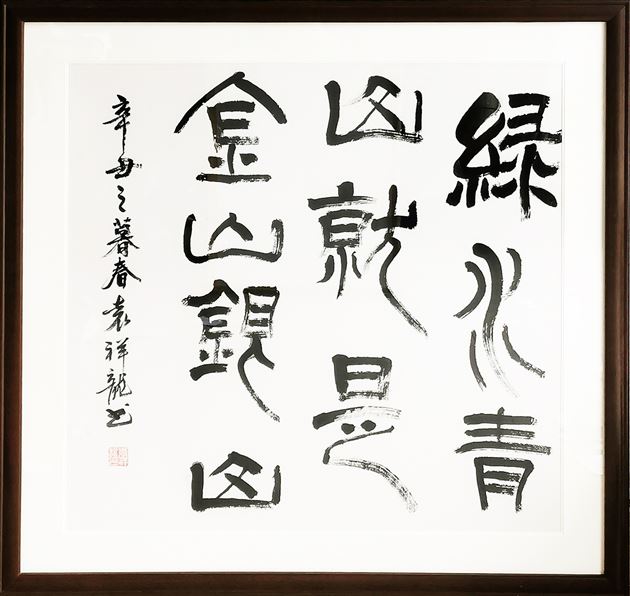 綠水青
山就是
金山銀山
辛丑之暮春袁祥龍书